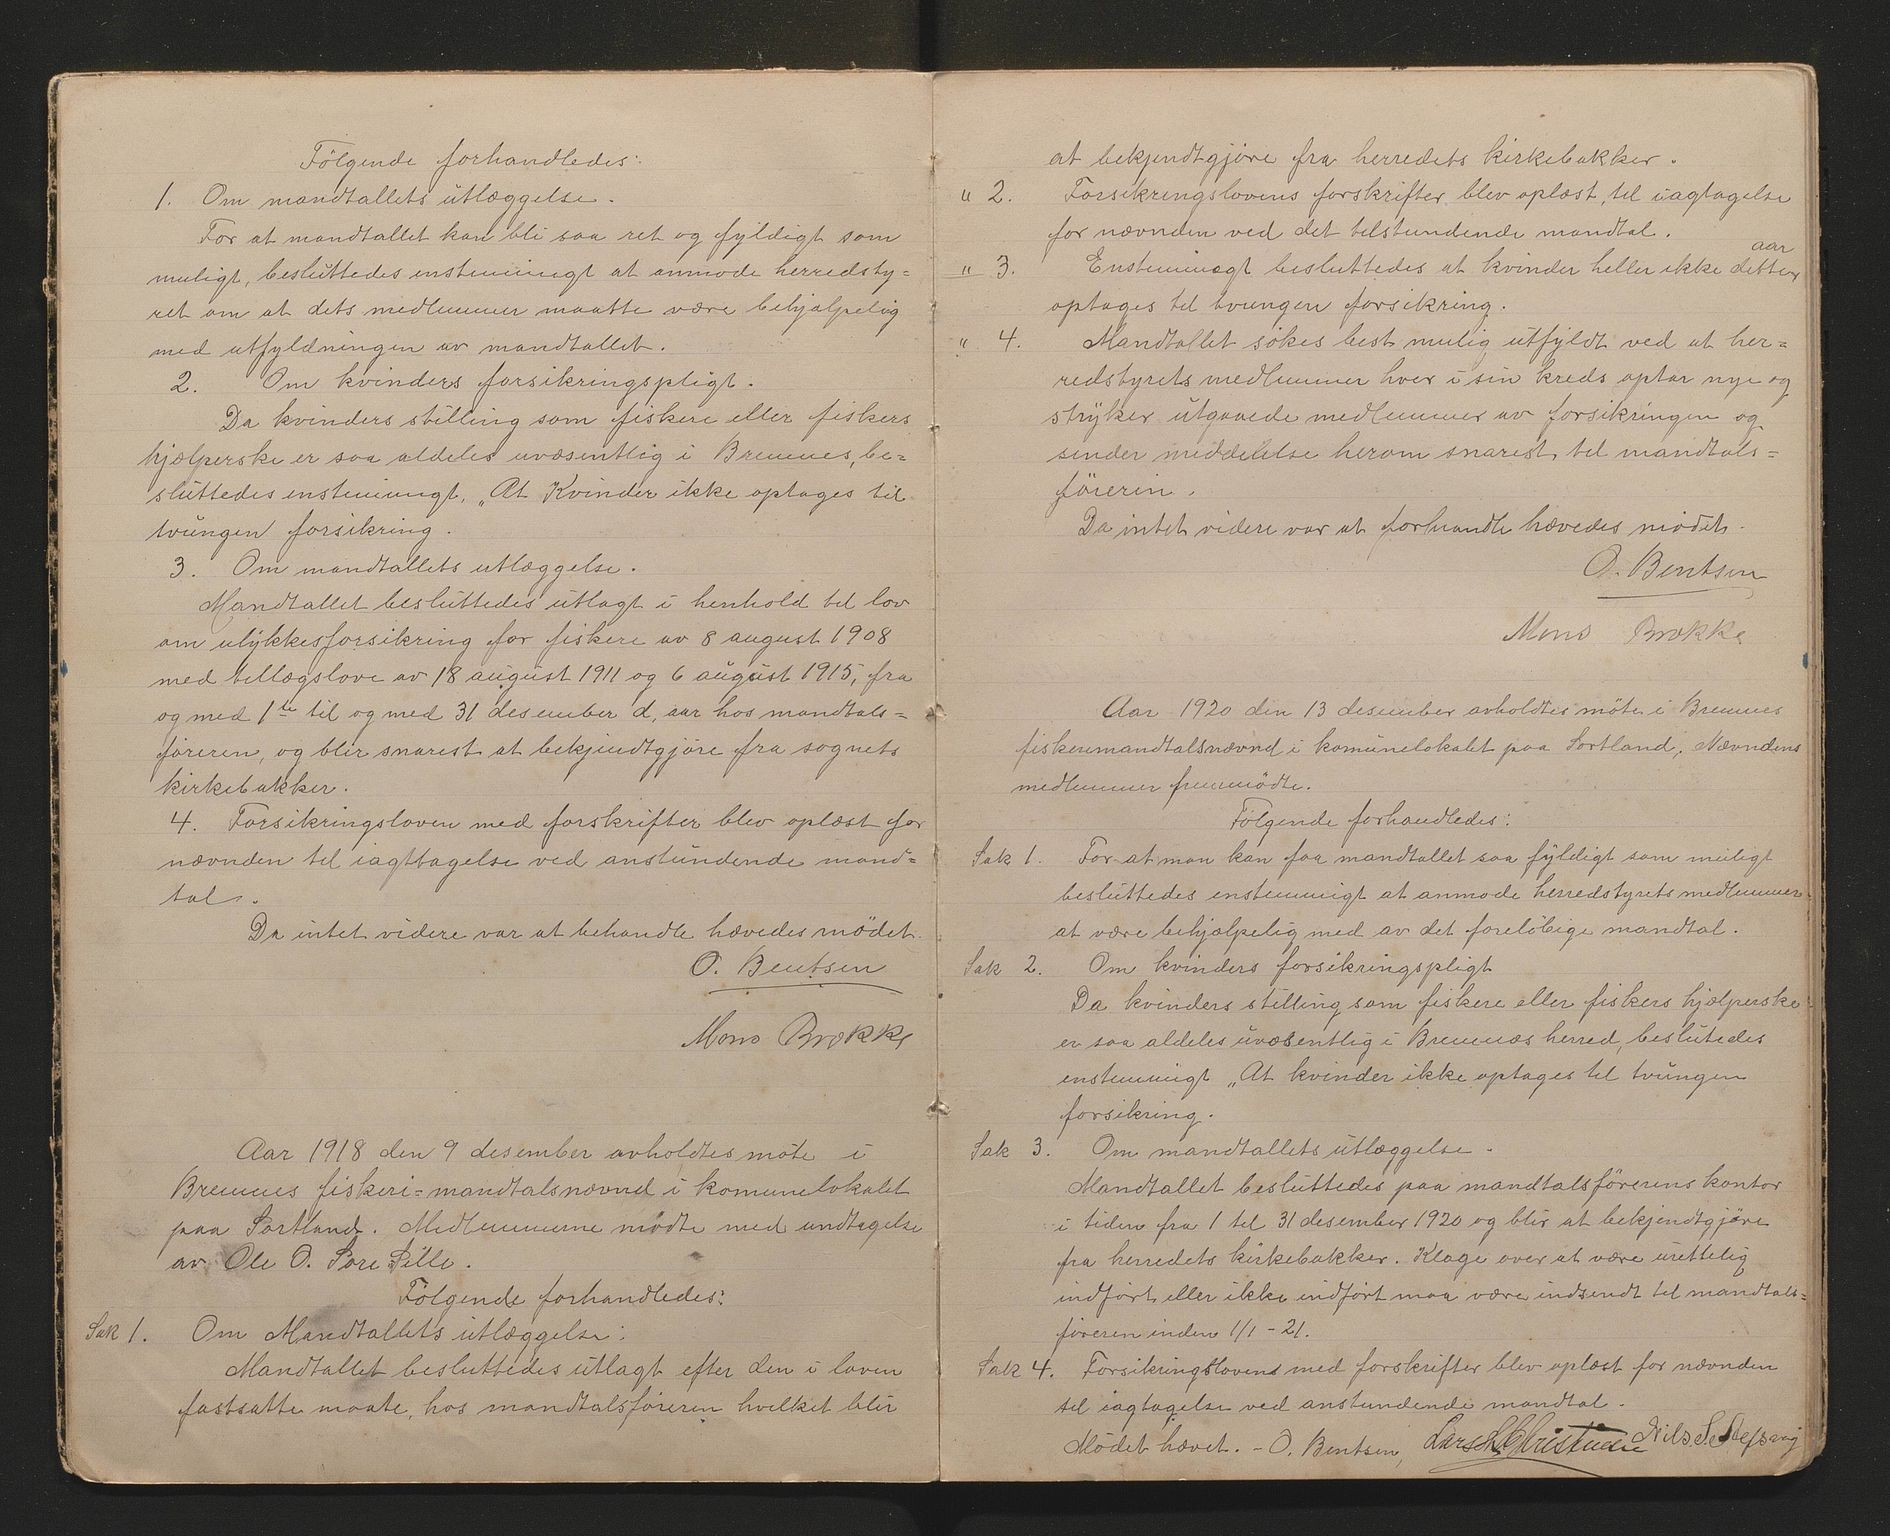 Følgende forhandledes:
1. Om mandtallets utlæggelse.
For at mandtallet kan bli saa ret og fyldigt som
muligt, besluttedes enstemmigt at anmode herredsty=
ret om at dets medlemmer maatte være behjælpelig
med utfyldningen av mandtallet.
2. Om kvinders forsikringspligt.
Da kvinders stilling som fiskere eller fiskers
hjælperske er saa aldeles uvæsentlig i Bremnes, be=
sluttedes enstemmigt, „At Kvinder ikke optages til
tvungen forsikring.
3. Om mandtallets utlæggelse.
Mandtallet besluttedes utlagt i henhold til lov
om ulykkesforsikring for fiskere av 8 august 1908
med tillægslove av 18 august 1911 og 6 august 1915, fra
og med 1te til og med 31 desember d, aar hos mandtals=
føreren, og blir snarest at bekjendtgjøre fra sognets
kirkebakker.
4. Forsikringsloven med forskrifter blev oplæst for
nævnden til iagttagelse ved anstundende mand=
tal.
Da intet videre var at behandle hævedes mødet.
O. Bentsen
Mons Brække
Aar 1918 den 9 desember avholdtes møte i
Bremnes fiskeri=mandtalsnævnd i komunelokalet
paa Sortland. Medlemmerne mødte med undtagelse
av Ole O. Søre Lille.
Følgende forhandledes:
Sak 1. Om Mandtallets utlæggelse:
Mandtallet besluttedes utlagt efter den i loven
fastsatte maate, hos mandtalsføreren hvilket blir
at bekjendtgjøre fra herredets kirkebakker.
„ 2. Forsikringslovens forskrifter blev oplæst, til iagtagelse
for nævnden ved det tilstundende mandtal.
aar
„ 3. Enstemmigt besluttedes at kvinder heller ikke dette
optages til tvungen forsikring.
„ 4. Mandtallet søkes best mulig utfyldt ved at her=
redstyrets medlemmer hver i sin kreds optar nye og
stryker utgaaede medlemmer av forsikringen og
sender middelelse herom snarest til mandtals=
føreren.
Da intet videre var at forhandle hævedes mødet.
O. Bentsen
Mons Brække
Aar 1920 den 13 desember avholdtes møte i Bremnes
fiskermandtalsnævnd i komunelokalet paa Sortland, Nævndens
medlemmer fremmødte.
Følgende forhandledes:
Sak 1. For at man kan faa mandtallet saa fyldigt som muligt
besluttedes enstemmigt at anmode herredstyrets medlemmer
at være behjælpelig med av det foreløbige mandtal.
Sak 2. Om kvinders forsikringspligt
Da kvinders stilling som fiskere eller fiskers hjælperske
er saa aldeles uvæsentlig i Bremnæs herred, beslutedes
enstemmigt „At kvinder ikke optages til tvungen
forsikring.
Sak 3. Om mandtallets utlæggelse.
Mandtallet besluttedes paa mandtalsførerens kontor
i tiden fra 1 til 31 desember 1920 og blir at bekjendtgjøre
fra herredets kirkebakker. Klage over at være urettelig
indført eller ikke indført maa være indsendt til mandtals=
føreren inden 1/1 - 21.
Sak 4. Forsikringslovens med forskrifter blev oplæst for nævnden
til iagtagelse ved anstundende mandtal.
Mødet hævet. - O. Bentsen, Lars Christensen Nils S.